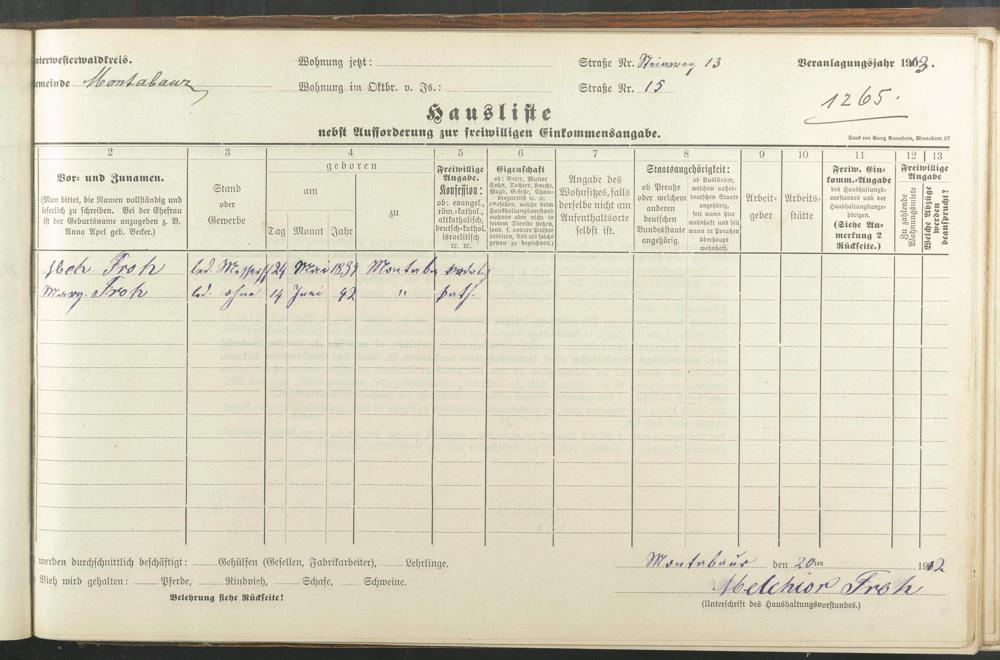 nterwesterwaldkreis. Wohnung jetzt: Straße Nr. Steinweg 13 Veranlagungsjahr 1913.
emeinde Montabaur Wohnung im Oktbr. v. Js.: Straße Nr. 15
1265.
Hausliste
nebst Aufforderung zur freiwilligen Einkommensangabe.
Druck von Georg Sauerborn, Montabaur. 07
2 3 4 5 6 7 8 9 10 11 12 13
Vor- und Zunamen.
(Man bittet, die Namen vollständig und
leserlich zu schreiben. Bei der Ehefrau
ist der Geburtsname anzugeben z. B.
Anna Apel geb. Becker.)
Stand
oder
Gewerbe
geboren
am
zu
Tag Monat Jahr
Freiwillige
Angabe.
Konfession:
ob: evangel.,
röm.-kathol.,
altkatholisch,
deutsch-kathol.
israelitisch
ꝛc. ꝛc.
Eigenschaft
ob: Vater, Mutter
Sohn, Tochter, Knecht,
Magd, Geselle, Cham-
bregarnist ꝛc. ꝛc.
(Personen, welche beim
Haushaltungsvorstand
wohnen aber nicht in
seinem Dienste stehen,
sond. f. andere Meister
arbeiten, sind als solche
genau zu bezeichnen.)
Angabe des
Wohnsitzes, falls
derselbe nicht am
Aufenthaltsorte
selbst ist.
Staatsangehörigkeit:
ob Preuße
oder welchem
anderen
deutschen
Bundesstaate
angehörig.
ob Ausländer,
welchem außer-
deutschen Staate
angehörig,
seit wann hier
wohnhaft und seit
wann in Preußen
überhaupt
wohnhaft.
Arbeit-
geber
Arbeits-
stätte
Freiw. Ein-
komm.-Angabe
des Haushaltungs-
vorstandes und der
Haushaltungsange-
hörigen.
(Siehe An-
merkung 2
Rückseite.)
Freiwillige
Angabe
Zu zahlende
Wohnungsmiete
Welche Abzüge
werden
beansprucht?
Melch Froh led. 24 Mai 1839 Montab kathol.
Marg. Froh led. ohne 14 Juni 42 " kath.
werden durchschnittlich beschäftigt: Gehülfen (Gesellen, Fabrikarbeiter), Lehrlinge.
Vieh wird gehalten: Pferde, Rindvieh, Schafe, Schweine.
Belehrung siehe Rückseite!
Montabaur den 20ten 1912
Melchior Froh
(Unterschrift des Haushaltungsvorstandes.)